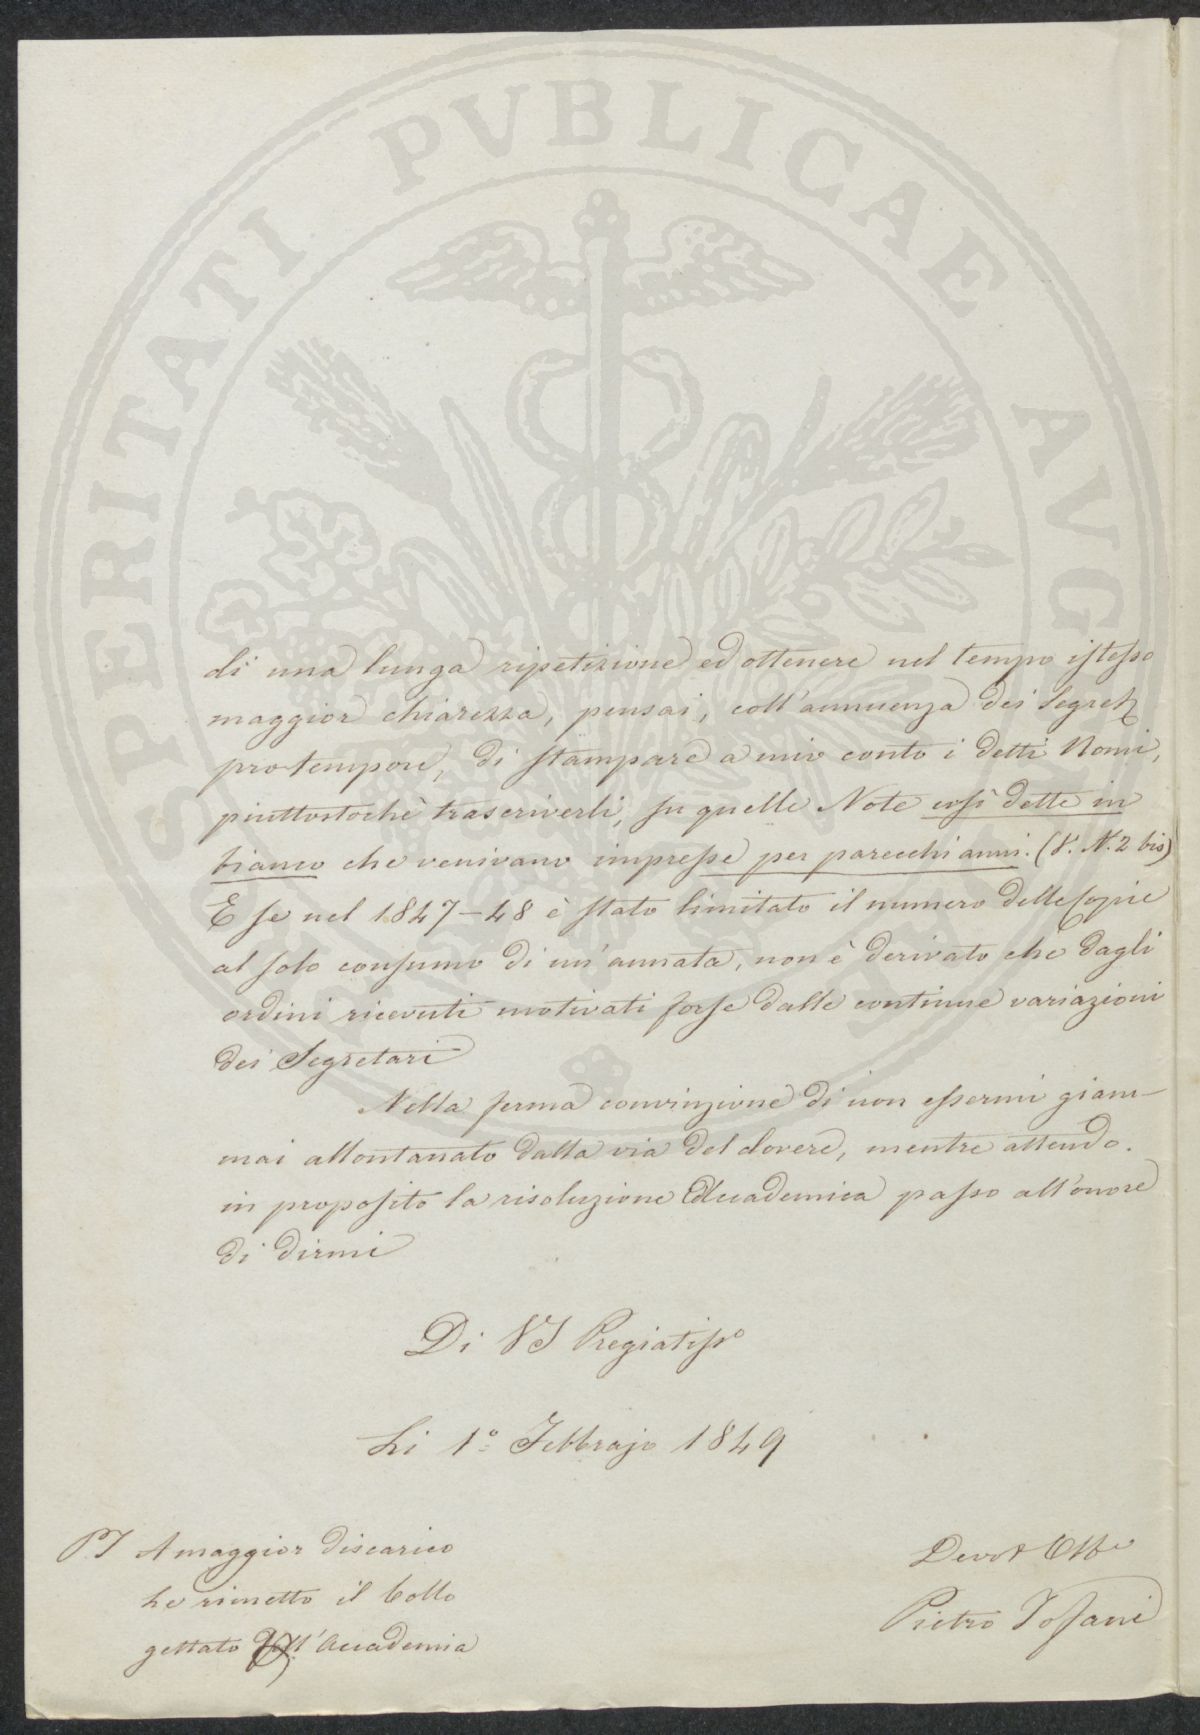 PROSPERITATI PVBLICAE AVGENDAE
di una lunga ripetizione ed ottenere nel tempo istesso
maggior chiarezza, pensai, coll'annuenza dei Segret.
pro-tempore, di stampare a mio conto i detti Nomi,
piuttostochè trascriverli, su quelle Note così dette in
bianco che venivano impresse per parecchi anni. (V. N. 2 bis)
E se nel 1847-48 è stato limitato il numero delle Copie
al solo consumo di un'annata, non è derivato che dagli
ordini ricevuti motivati forse dalle continue variazioni
dei Segretari
Nella ferma convinzione di non essermi giam-
mai allontanato dalla via del dovere, mentre attendo
in proposito la risoluzione Accademica passo all'onore
di dirmi
Di VS Pregiatiss.
Li 1.° Febbrajo 1849
PS A maggior discarico
Le rimetto il bollo
gettato dell'Accademia
Devot Obb.
Pietro Tofani